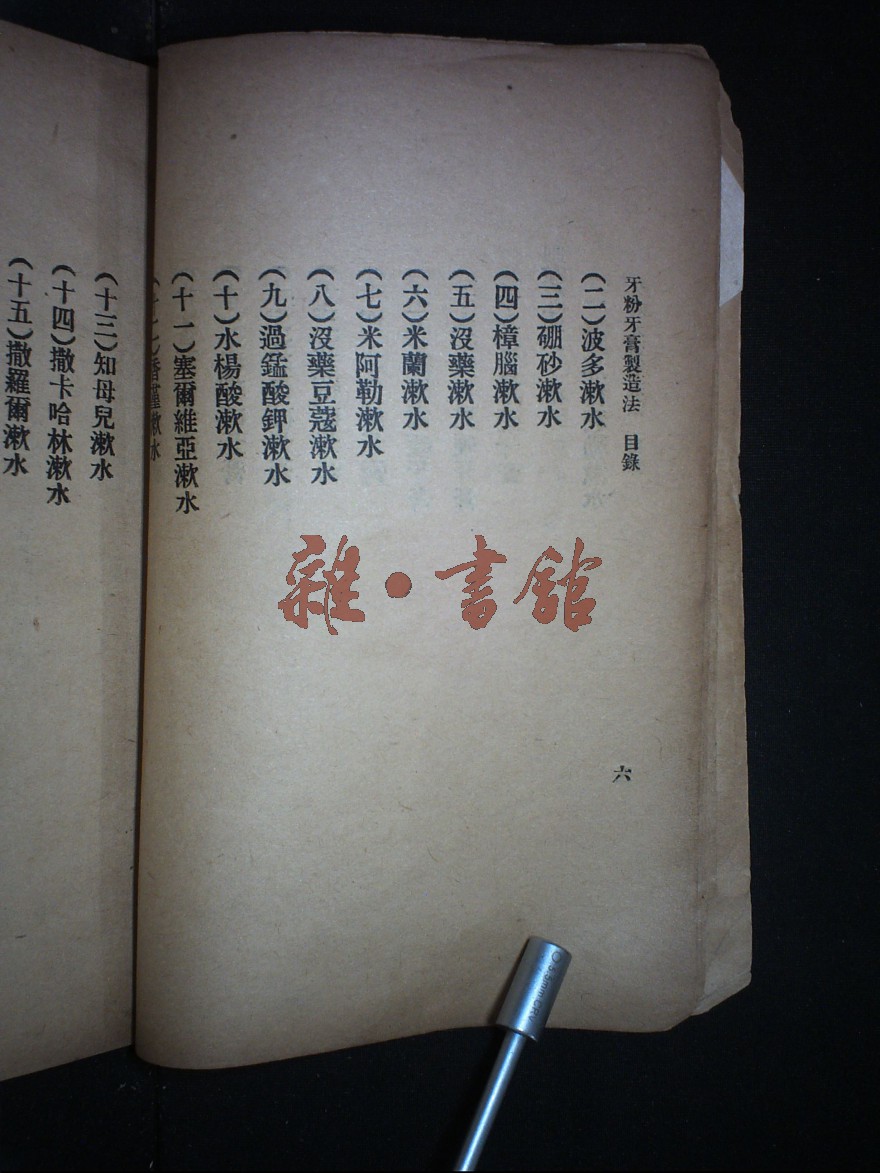 牙粉牙膏製造法　目錄
六
(二)波多漱水
(三)硼砂漱水
(四)樟腦漱水
(五)沒藥漱水
(六)米蘭漱水
(七)米阿勒漱水
(八)沒藥豆蔻漱水
(九)過錳酸鉀漱水
(十)水楊酸漱水
(十一)塞爾維亞漱水
香漱水
(十三)知母兒漱水
(十四)撒卡哈林漱水
(十五)撒羅爾漱水
雜·書館
5.5mm CRV